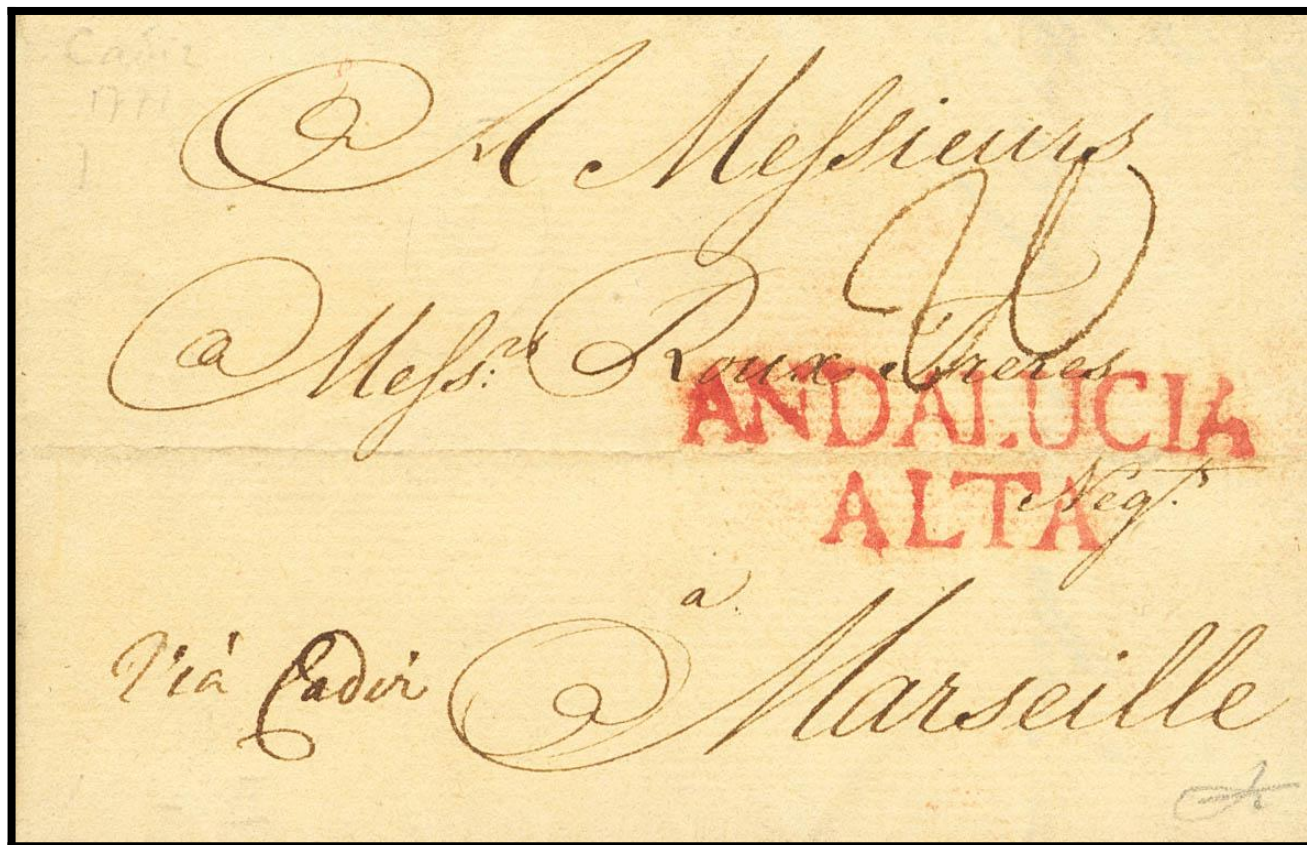 Cadiz
1771
A Messieurs
Mess.rs Roux Freres
ANDALUCIA
Neg.ts
ALTA
a
Viá Cadiz Marseille